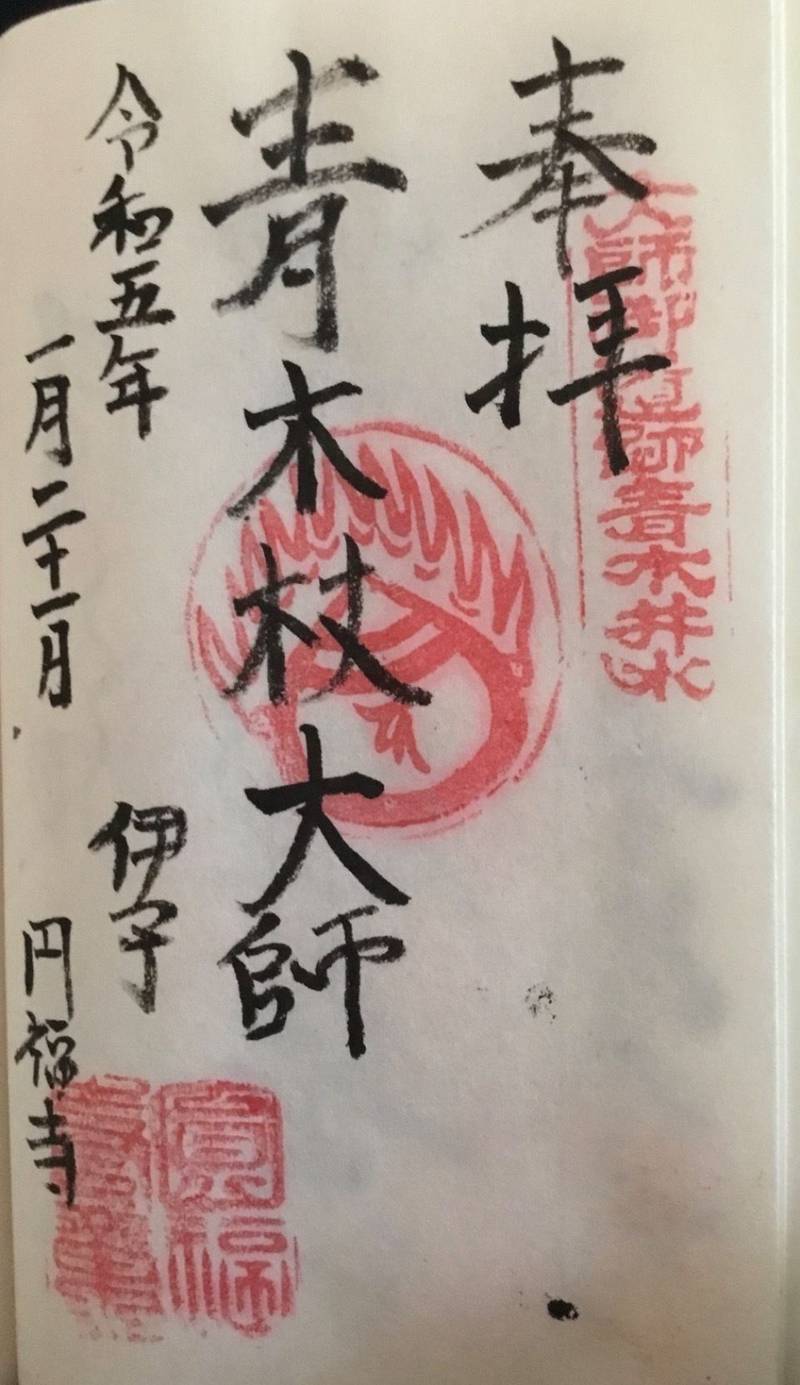 大師御遺跡青木井水
奉拝
青木杖大師
令和五年
一月二十一日
伊予
円福寺
圓福